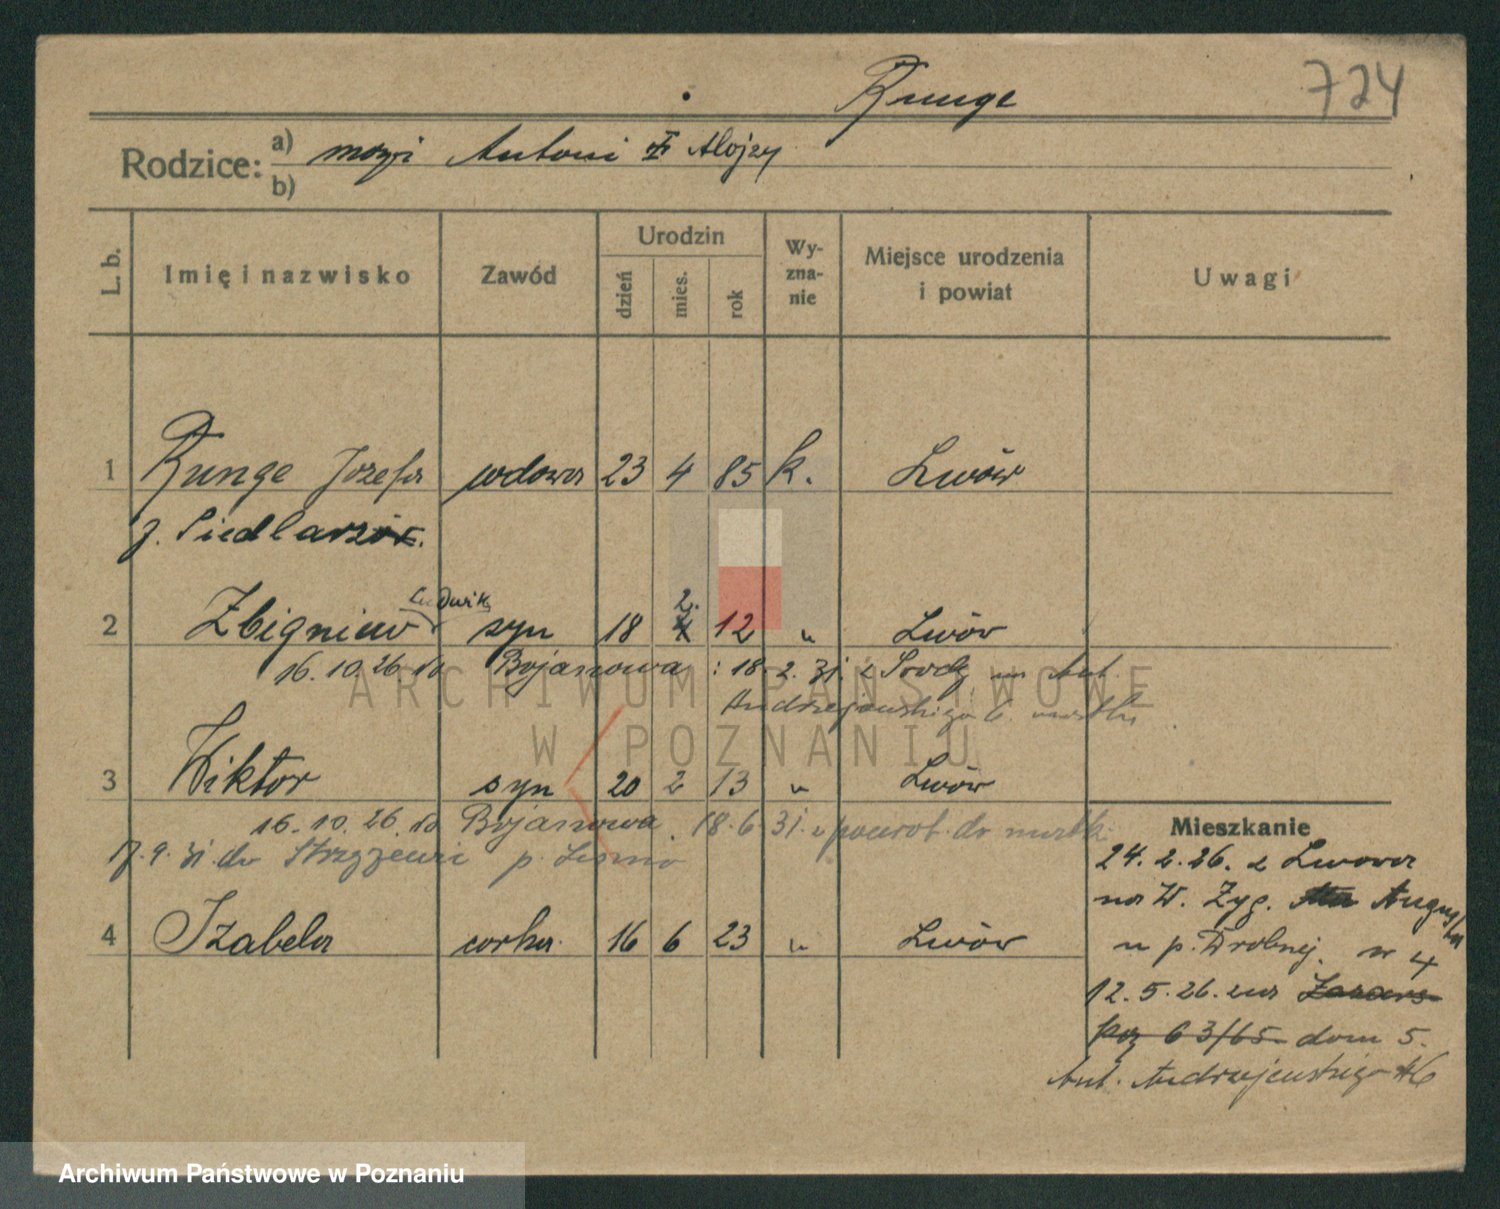 Runge 724
Rodzice: a) mąż Antoni Alojzy
b)
L. b. Imię i nazwisko Zawód Urodzin dzień mies. rok Wyznanie Miejsce urodzenia i powiat Uwagi
1 Runge Józefa wdowa 23 4 85 k. Lwów
Siedlarz
Ludwik
2.
2 Zbigniew syn 18 4 12 " Lwów
16.10.26 do Bojanowa : 18.2.31. z Środy Ant.
Andrzejewskiego 6. matki
3 Wiktor syn 20 2 13 " Lwów
16.10.26 do Bojanowa. 18.6 31. powrot. do matk.
17.9.31. do p. Leszno
4 Izabela corka 16 6 23 " Lwów
Mieszkanie
24.2.26. z Lwowa
na W. Zyg. Augusta
u p. Drobnej. nr 4
12.5.26. na
63/65 dom 5.
Ant. Andrzejewskiego 46
ARCHIWUM PAŃSTWOWE
W POZNANIU
Archiwum Państwowe w Poznaniu